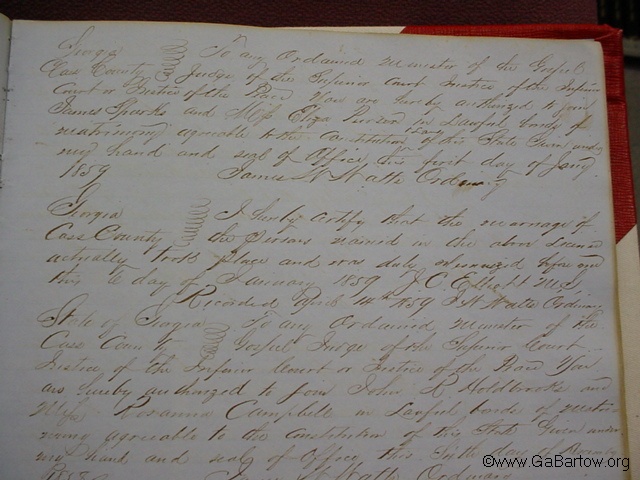 Georgia To any Ordained Minister of the Gospel
Cass County Judge of the Superior Court Justice of the Inferior
Court or Justice of the Peace You are hereby authorized to join
James Sparks and Miss Eliza Pierson in Lawful bonds of
matrimony agreeable to the Constitution & Laws of this State Given under
my hand and seal of Office this first day of Jany
1859 James W Watts Ordinary
Georgia I hereby certify that the marriage of
Cass County the persons named in the above License
actually took place and was duly solemnized before me
this 6 day of January 1859 J. C.
Recorded April 14th 1859 J W Watts Ordinary
State of Georgia To any Ordained Minister of the
Cass County Gospel Judge of the Superior Court
Justice of the Inferior Court or Justice of the Peace You
are hereby authorized to join John R. Holdbrooks and
Miss Roxanna Campbell in Lawful bonds of matri
mony agreeable to the Constitution of this State Given under
my hand and seal of Office this day of
James W Watts Ordinary
©www.GaBartow.org